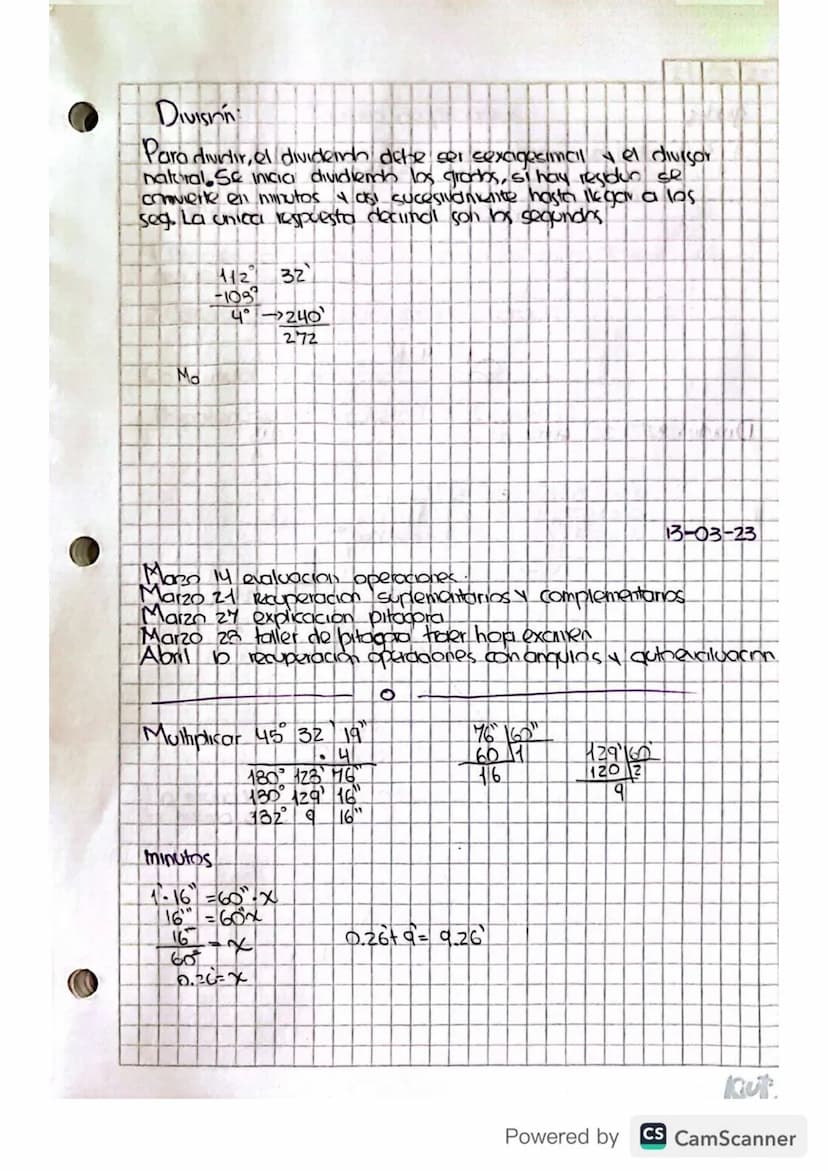 División:
Para dividir, el dividendo debe ser sexagesimal y el divisor
natural. Se inicia dividiendo los grados, si hay residuo se
convierte en minutos y asi sucesivamente hasta llegar a los
seg. La unica respuesta decimal son los segundos
112° 32'
-108°
4° →240'
272
Mo
13-03-23
Marzo 14 evaluacion operaciones.
Marzo 21 recuperacion suplementarios y complementarios
Marzo 27 explicación pitagora
Marzo 28 taller de pitagora traer hoja examen
Abril recuperación operaciones con angulos y autoevaluacion
Multiplicar 45° 32' 19"
. 4
180° 128' 76"
180° 129' 16"
182° 9 16"
76" 60"
60 1
16
129' 60'
120 2
9
minutos
1'·16" =60"·x
16" =60"x
16"
60" = x
0.26=x
0.26+9'= 9.26'
Kiut.
Powered by CS CamScanner